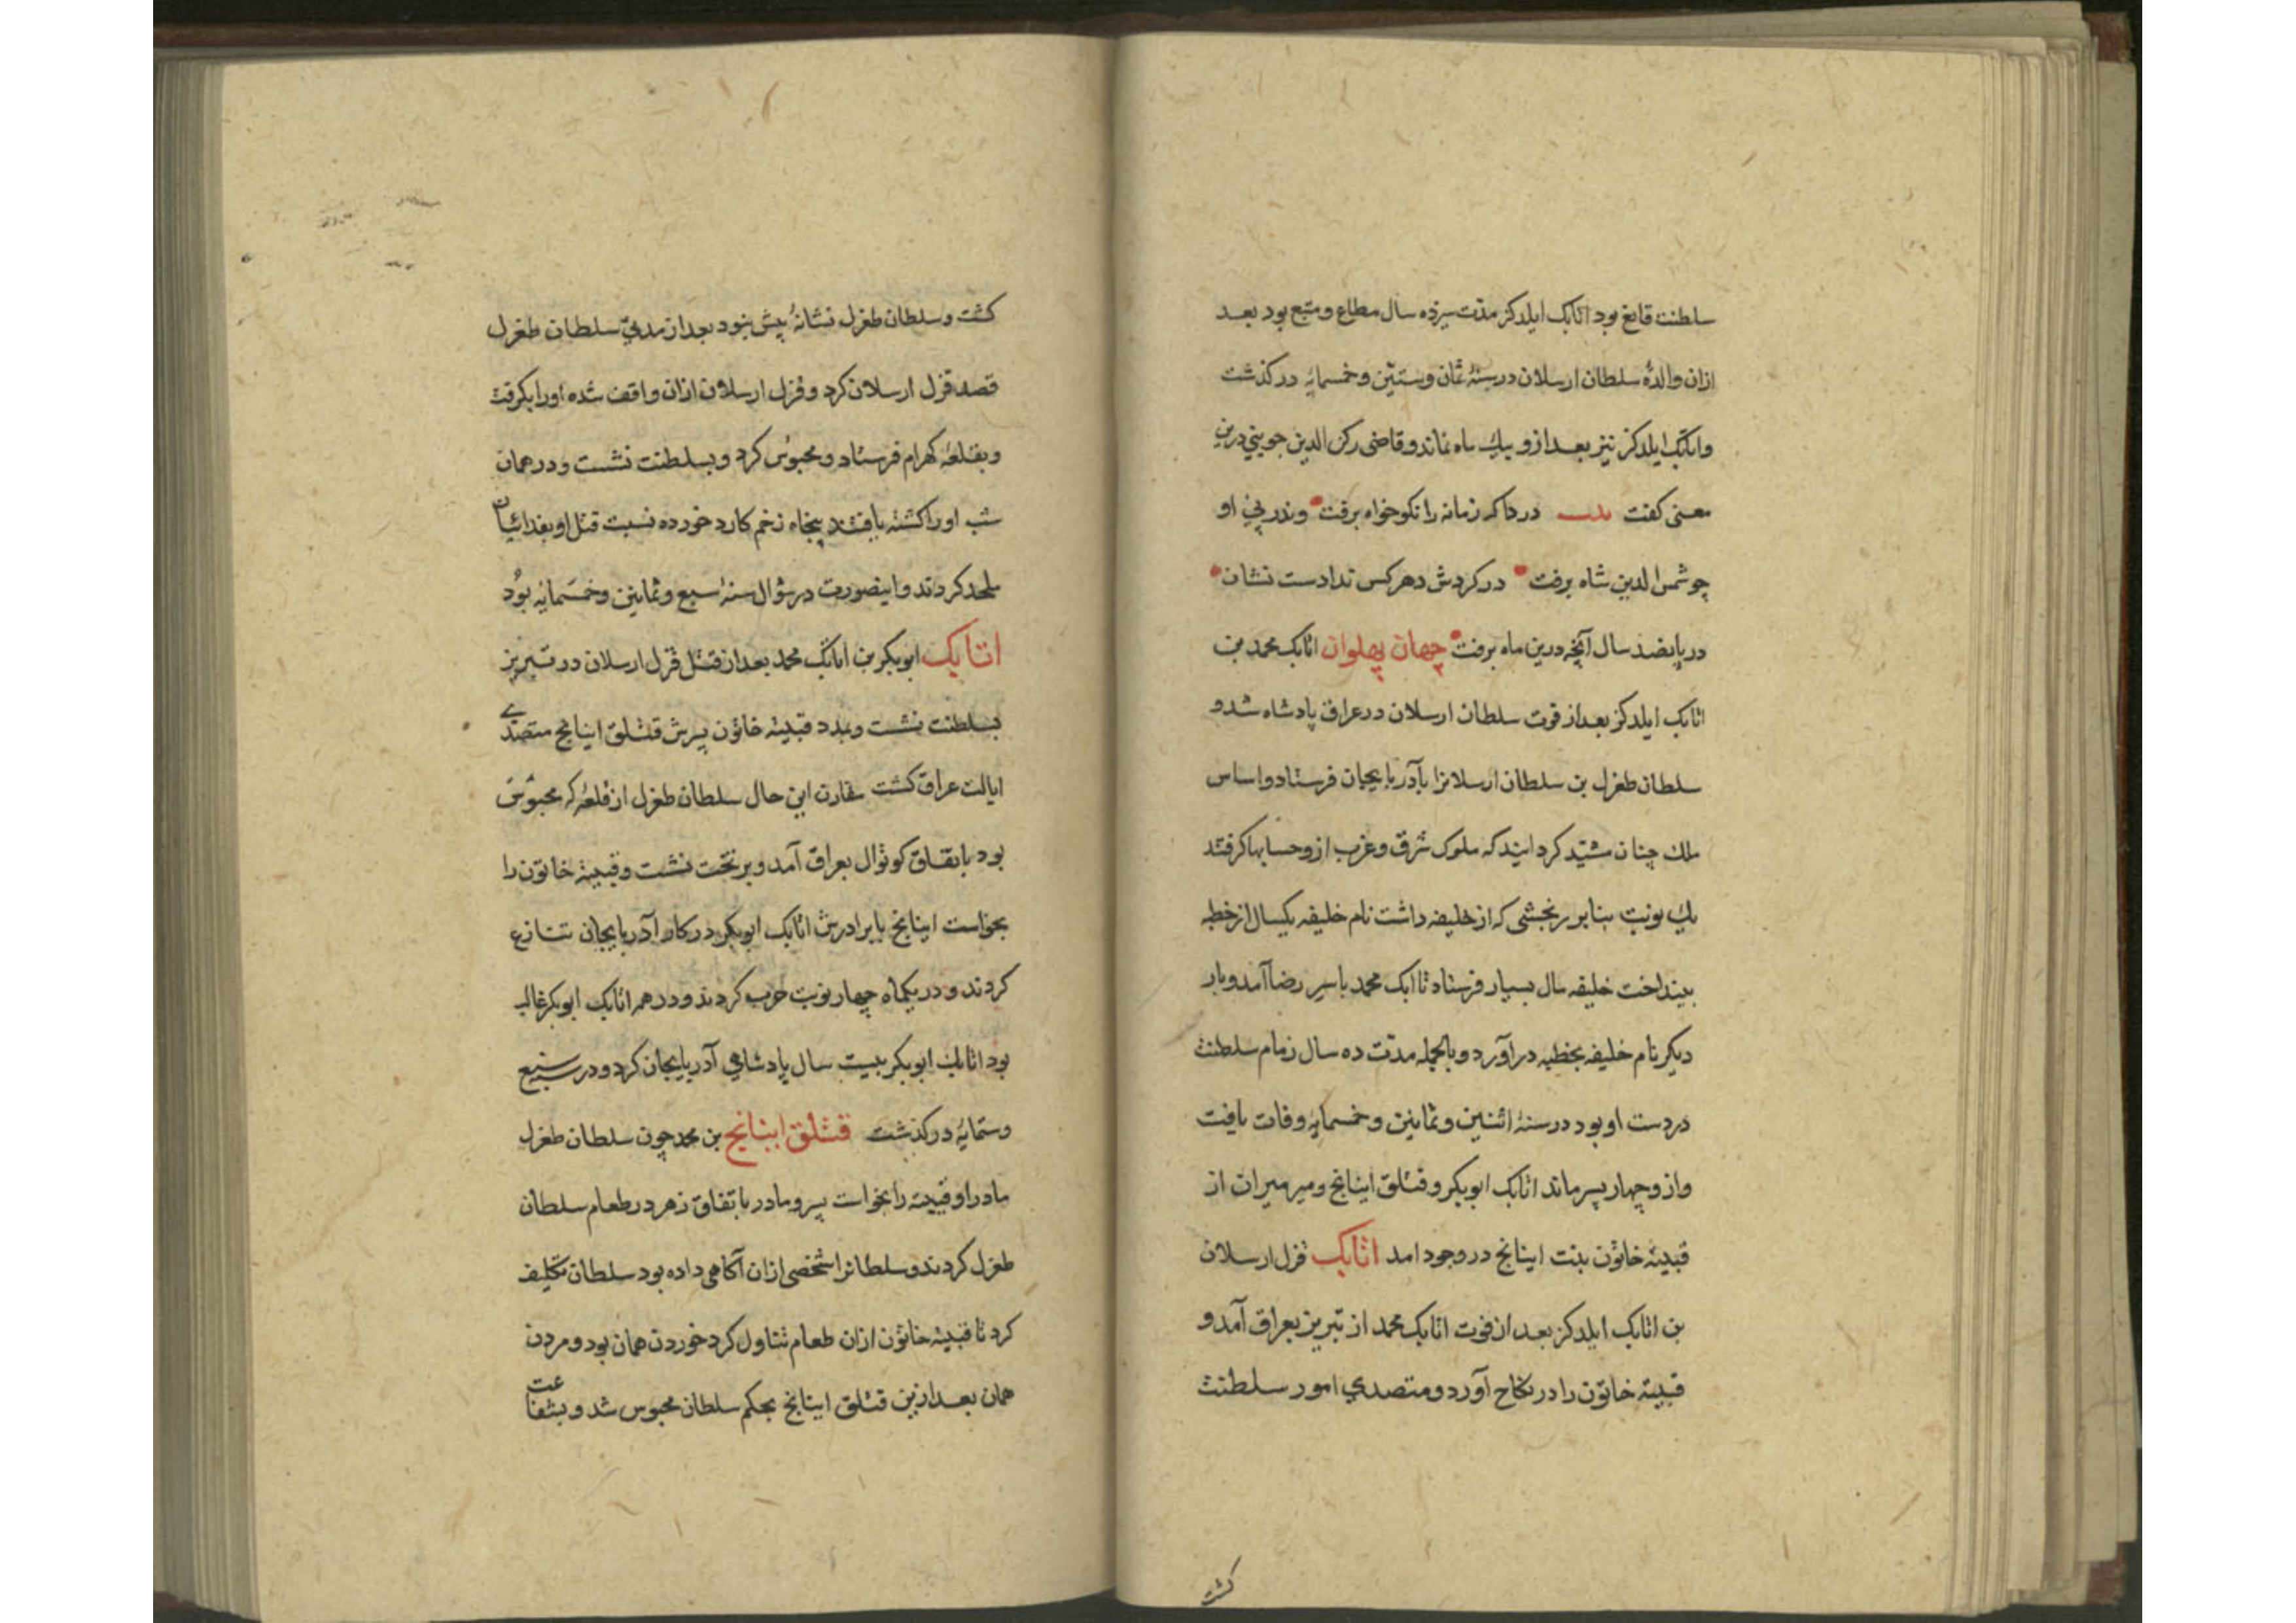 سلطنت قانع بود اتابک ایلدکز مدّت سیزده سال مطاع و متبع بود بعد
ازان والدهٔ سلطان ارسلان در سنهٔ ثمان و ستین و خمسمایه درکذشت
و اتابک ایلدکز نیز بعد ازو یک ماه نماند و قاضی رکن الدین جوینی درین
معنی کفت بیت دردا که زمانه را نکوخواه برفت وندر پی او
چو شمس الدین شاه برفت در کردش دهر کس ندادست نشان
در پانصد سال آنچه درین ماه برفت جهان پهلوان اتابک محمد بن
اتابک ایلدکز بعد از فوت سلطان ارسلان در عراق پادشاه شد و
سلطان طغرل بن سلطان ارسلانرا بآذربایجان فرستاد و اساس
ملک چنان مشیّد کردانید که ملوک شرق و غرب ازو حسابها کرفتند
یک نوبت بنابر رنجشی که از خلیفه داشت نام خلیفه یکسال از خطبه
بینداخت خلیفه مال بسیار فرستاد تا اتابک محمد باسر رضا آمد و بار
دیکر نام خلیفه بخطبه درآورد و بالجمله مدّت ده سال زمام سلطنت
در دست او بود در سنهٔ اثنین و ثمانین و خمسمایهٔ وفات یافت
و ازو چهار پسر ماند اتابک ابوبکر و قتلق اینانج و میر میران از
قبیتهٔ خاتون بنت اینانج در وجود امد اتابک قزل ارسلان
بن اتابک ایلدکز بعد از فوت اتابک محمد از تبریز بعراق آمد و
قبیتهٔ خاتون را در نکاح آورد و متصدی امور سلطنت
کشت
کشت و سلطان طغرل نشانهٔ بیش نبود بعد از مدتی سلطان طغرل
قصد قزل ارسلان کرد و قزل ارسلان ازان واقف شده اورا بکرفت
و بقلعهٔ کهرام فرستاد و محبوس کرد و بسلطنت نشست و در همان
شب اورا کشته یافتند پنجاه زخم کارد خورده نسبت قتل او بفدائیان
ملحد کردند و اینصورت در شوال سنهٔ سبع و ثمانین و خمسمایه بود
اتابک ابوبکر بن اتابک محمد بعد از قتل قزل ارسلان در تبریز
بسلطنت نشست و بمدد قبیتهٔ خاتون پسرش قتلق اینانج متصدی
ایالت عراق کشت مقارن این حال سلطان طغرل از قلعهٔ که محبوس
بود باتفاق کوتوال بعراق آمد و بر تخت نشست و قبیتهٔ خاتون را
بخواست اینانج با برادرش اتابک ابوبکر در کار آذربایجان تنازع
کردند و در یکماه چهار نوبت حرب کردند و در همه اتابک ابوبکر غالب
بود اتابک ابوبکر بیست سال پادشاهی آذربایجان کرد و در سنه سبع
و ستمایهٔ درکذشت قتلق اینانج بن محمد چون سلطان طغرل
مادر او قبیته را بخواست پسر و مادر باتفاق زهر در طعام سلطان
طغرل کردند و سلطانرا شخصی ازان آکاهی داده بود سلطان تکلیف
کرد تا قبیتهٔ خاتون ازان طعام تناول کرد خوردن همان بود و مردن
همان بعد ازین قتلق اینانج بحکم سلطان محبوس شد و بشفاعت